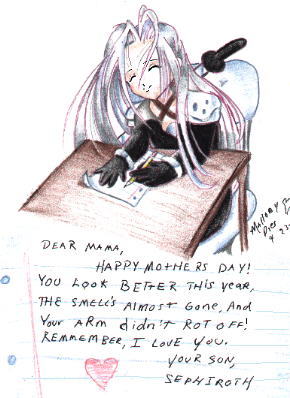 DEAR MAMA,
HAPPY MOTHERS DAY!
YOU LOOK BETTER THIS YEAR,
THE SMELL'S ALMOST GONE, AND
YOUR ARM didn't ROT OFF!
REMMEMBER, I LOVE YOU.
YOUR SON,
SEPHIROTH